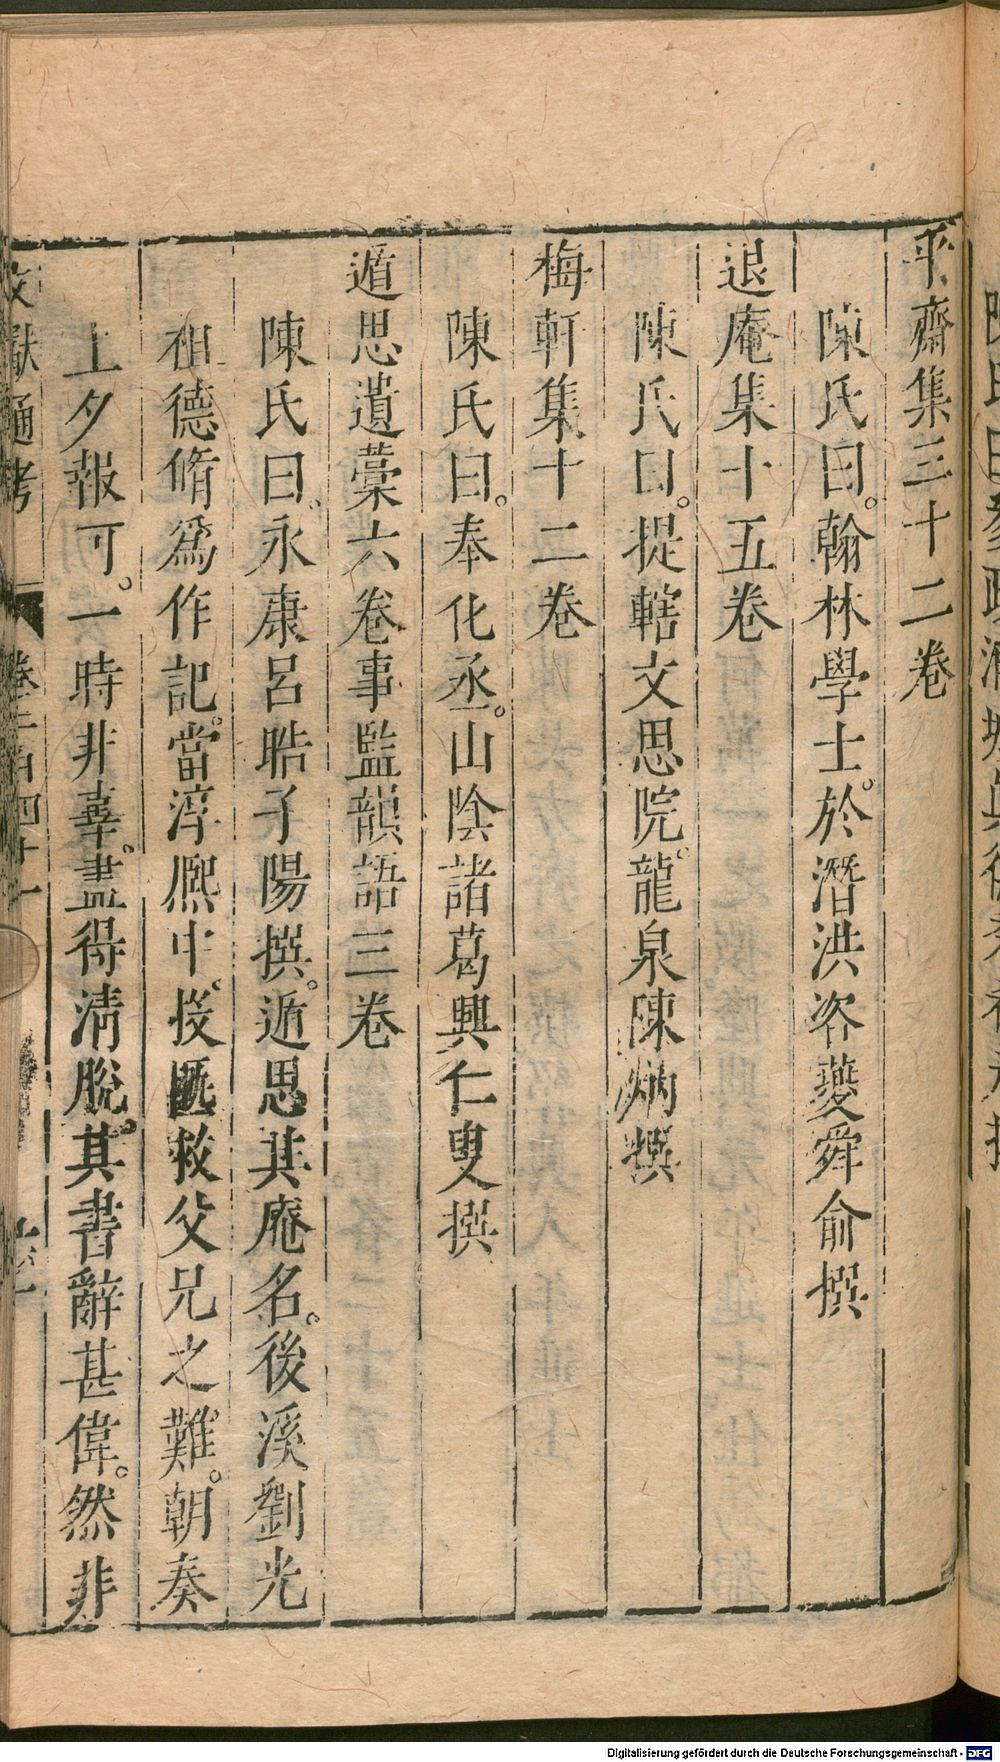 平齋集三十二卷
陳氏曰。翰林學士。於潛洪咨夔舜俞撰
退庵集十五卷
陳氏曰。提轄文思院。龍泉陳炳撰
梅軒集十二卷
陳氏曰。奉化丞。山陰諸葛興仁叟撰
遁思遺藁六卷事監韻語三卷
陳氏曰、永康呂晧子陽撰。遁思其庵名。後溪劉光
祖德脩爲作記。當淳熈中、投匭救父兄之難。朝奏
上夕報可。一時非辜。盡得清脫。其書辭甚偉。然非
文獻通考 卷二百四十一
Digitalisierung gefördert durch die Deutsche Forschungsgemeinschaft - DFG